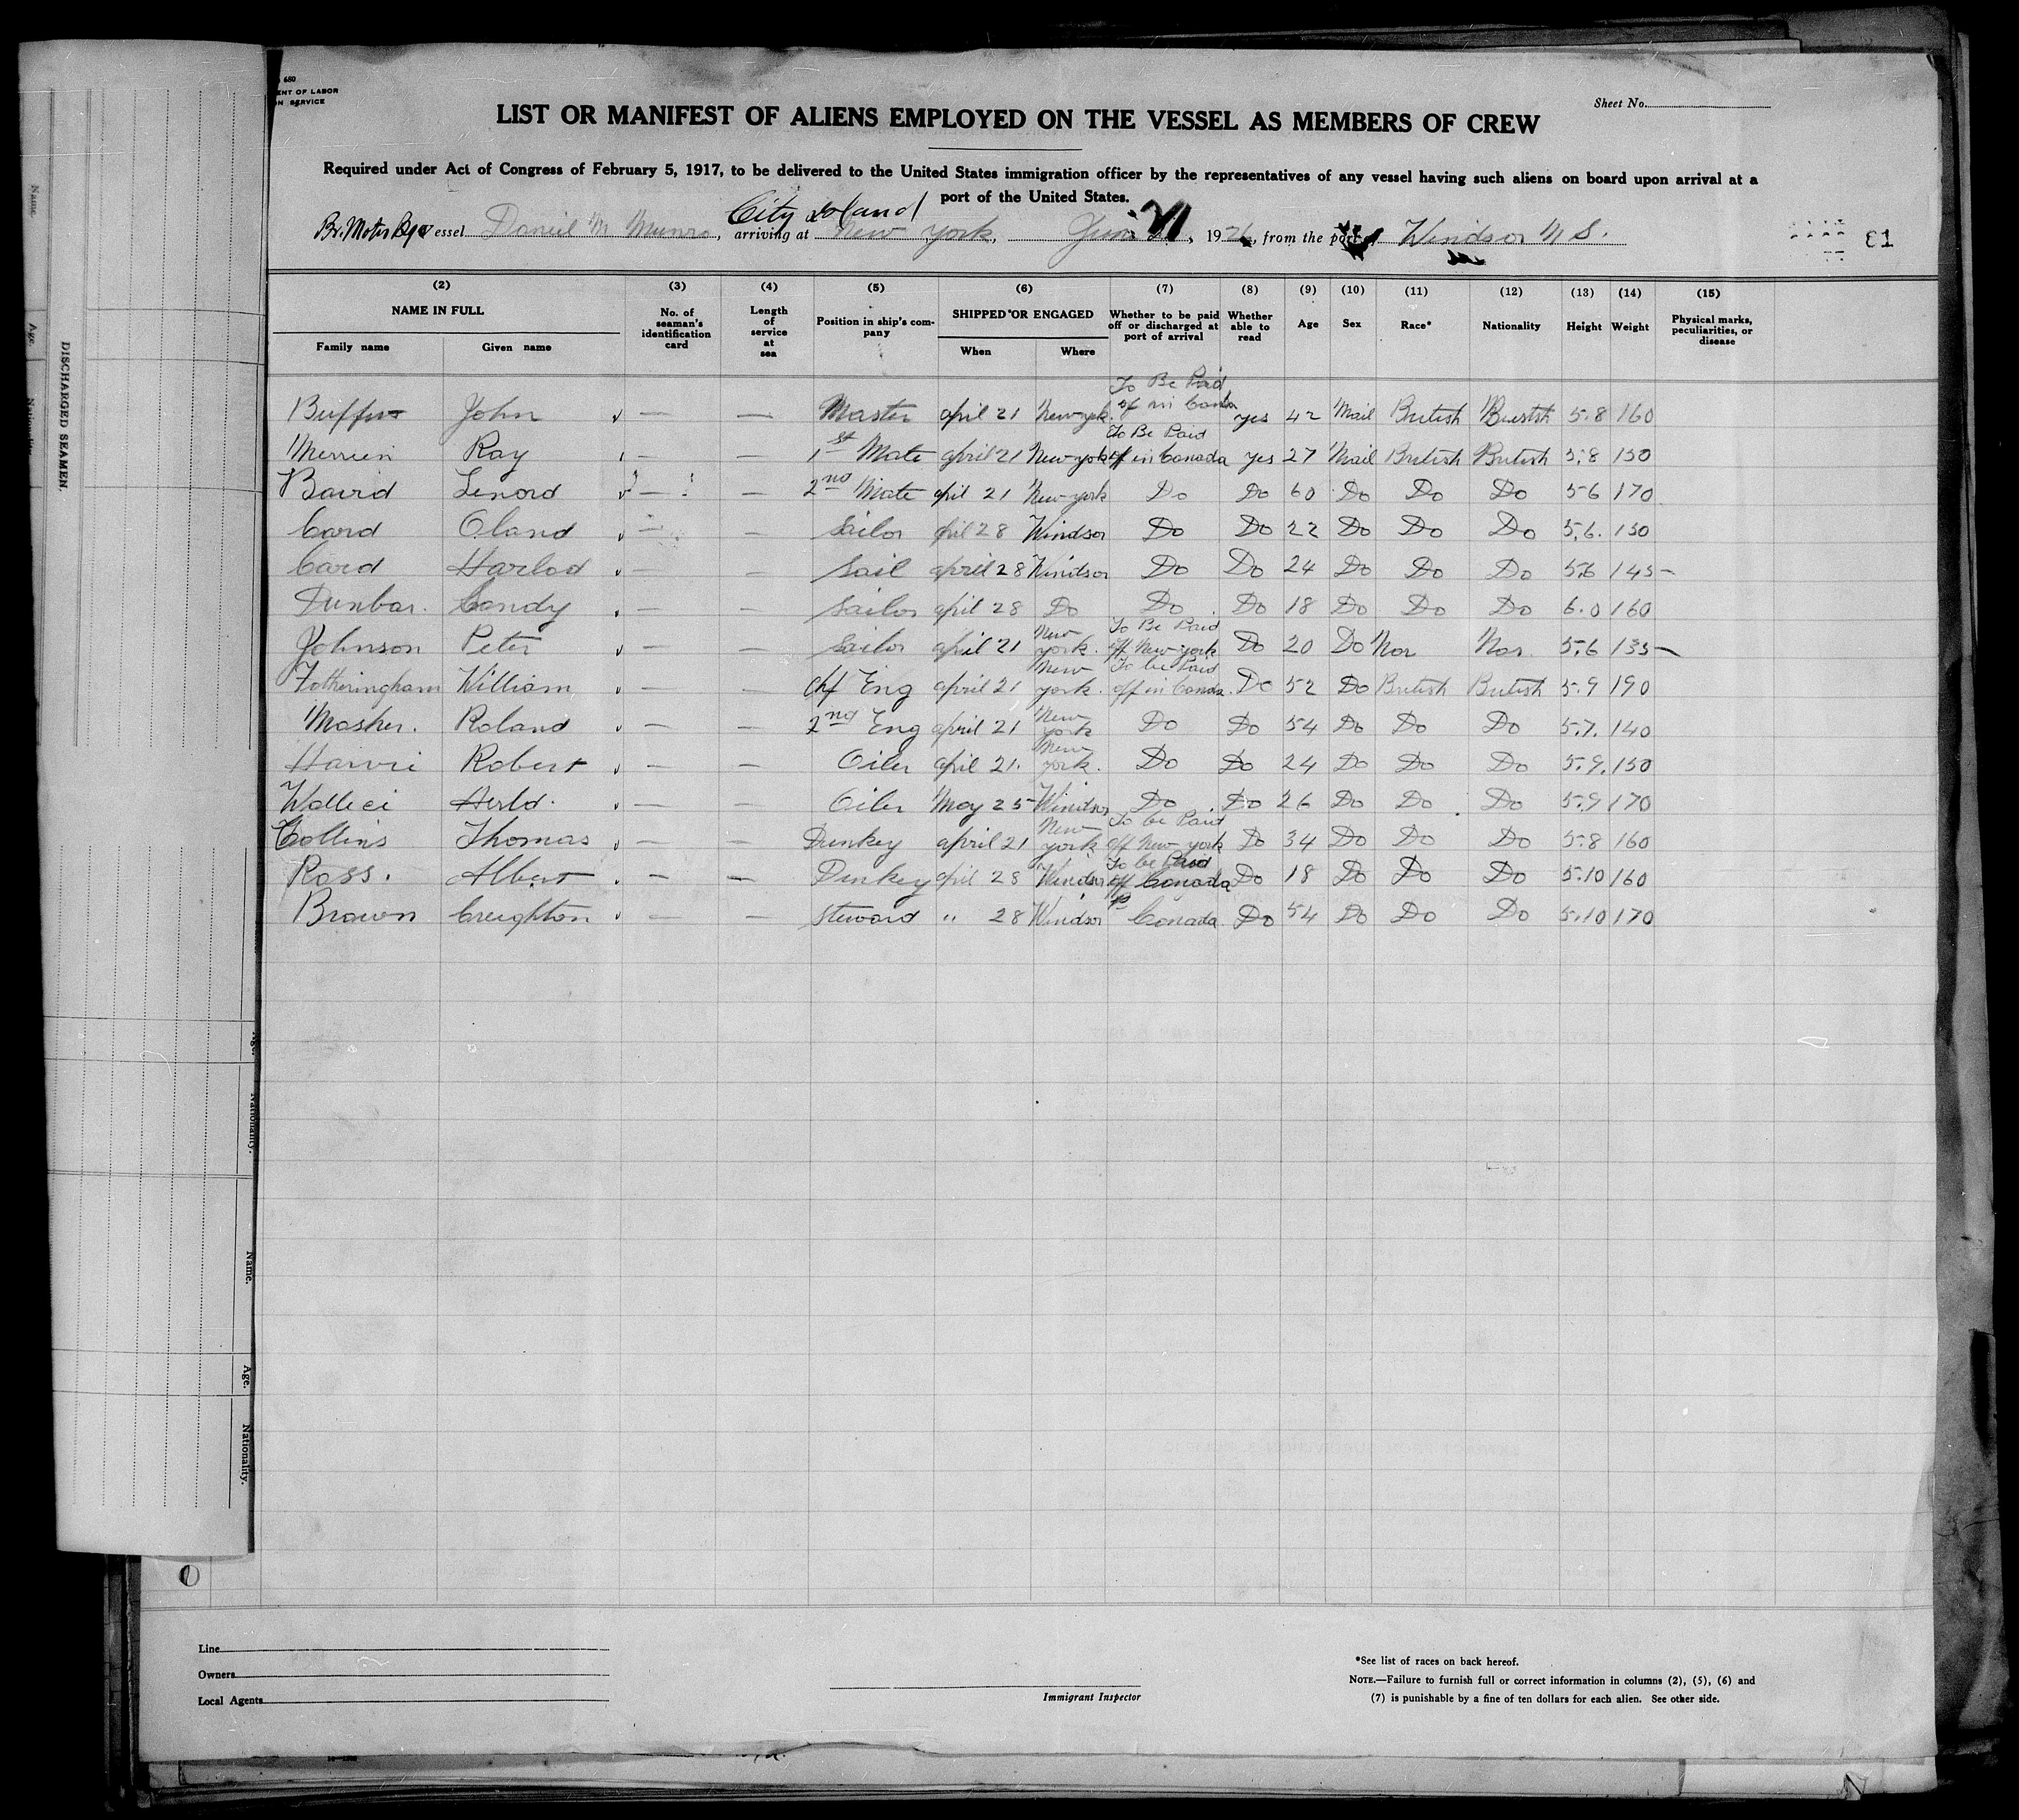 680
ENT OF LABOR
ON SERVICE
Sheet No.
LIST OR MANIFEST OF ALIENS EMPLOYED ON THE VESSEL AS MEMBERS OF CREW
Required under Act of Congress of February 5, 1917, to be delivered to the United States immigration officer by the representatives of any vessel having such aliens on board upon arrival at a
port of the United States.
City Island
Br. Motor Vessel Daniel M Munro, arriving at New York, June 21, 1926, from the port of Windsor N S.
81
(2) (3) (4) (5) (6) (7) (8) (9) (10) (11) (12) (13) (14) (15)
NAME IN FULL
Family name Given name
No. of seaman's identification card
Length of service at sea
Position in ship's company
SHIPPED OR ENGAGED
When Where
Whether to be paid off or discharged at port of arrival
Whether able to read
Age
Sex
Race*
Nationality
Height
Weight
Physical marks, peculiarities, or disease
John — — Master april 21 New york To Be Paid of in Canda yes 42 Mail British British 5.8 160
Ray — — 1st Mate april 21 New york To Be Paid off in Canada yes 27 Mail British British 5.8 150
Baird Lenord — — 2nd Mate april 21 New york Do Do 60 Do Do Do 5-6 170
Card Oland — — Sailor april 28 Windsor Do Do 22 Do Do Do 5.6. 150
Card Harlod — — Sail april 28 Windsor Do Do 24 Do Do Do 5.6 145
Dunbar. Candy — — Sailor april 28 Do Do Do 18 Do Do Do 6.0 160
Johnson Peter — — Sailor april 21 New york. To Be Paid off New york Do 20 Do Nor Nor. 5.6 135
Fotheringham William — — Chf Eng april 21 New york. To be Paid off in Canda. Do 52 Do British British 5.9 190
Mosher. Roland — — 2nd Eng april 21 New york Do Do 54 Do Do Do 5.7. 140
Harvie Robert — — Oiler april 21. New york. Do Do 24 Do Do Do 5.9. 150
Herld. — — Oiler May 25 Windsor Do Do 26 Do Do Do 5.9 170
Collins Thomas — — Dunkey april 21 New york To be Paid off New york Do 34 Do Do Do 5.8 160
Ross. Albert — — Dunkey april 28 Windsor To be Paid off Canada Do 18 Do Do Do 5.10 160
Brown Creighton — — Steward " 28 Windsor Canada. Do 54 Do Do Do 5.10 170
Line
Owners
Local Agents
Immigrant Inspector
*See list of races on back hereof.
NOTE.—Failure to furnish full or correct information in columns (2), (5), (6) and
(7) is punishable by a fine of ten dollars for each alien. See other side.
DISCHARGED SEAMEN.
Name.
Age.
Nationality.
Name.
Age.
Nationality.